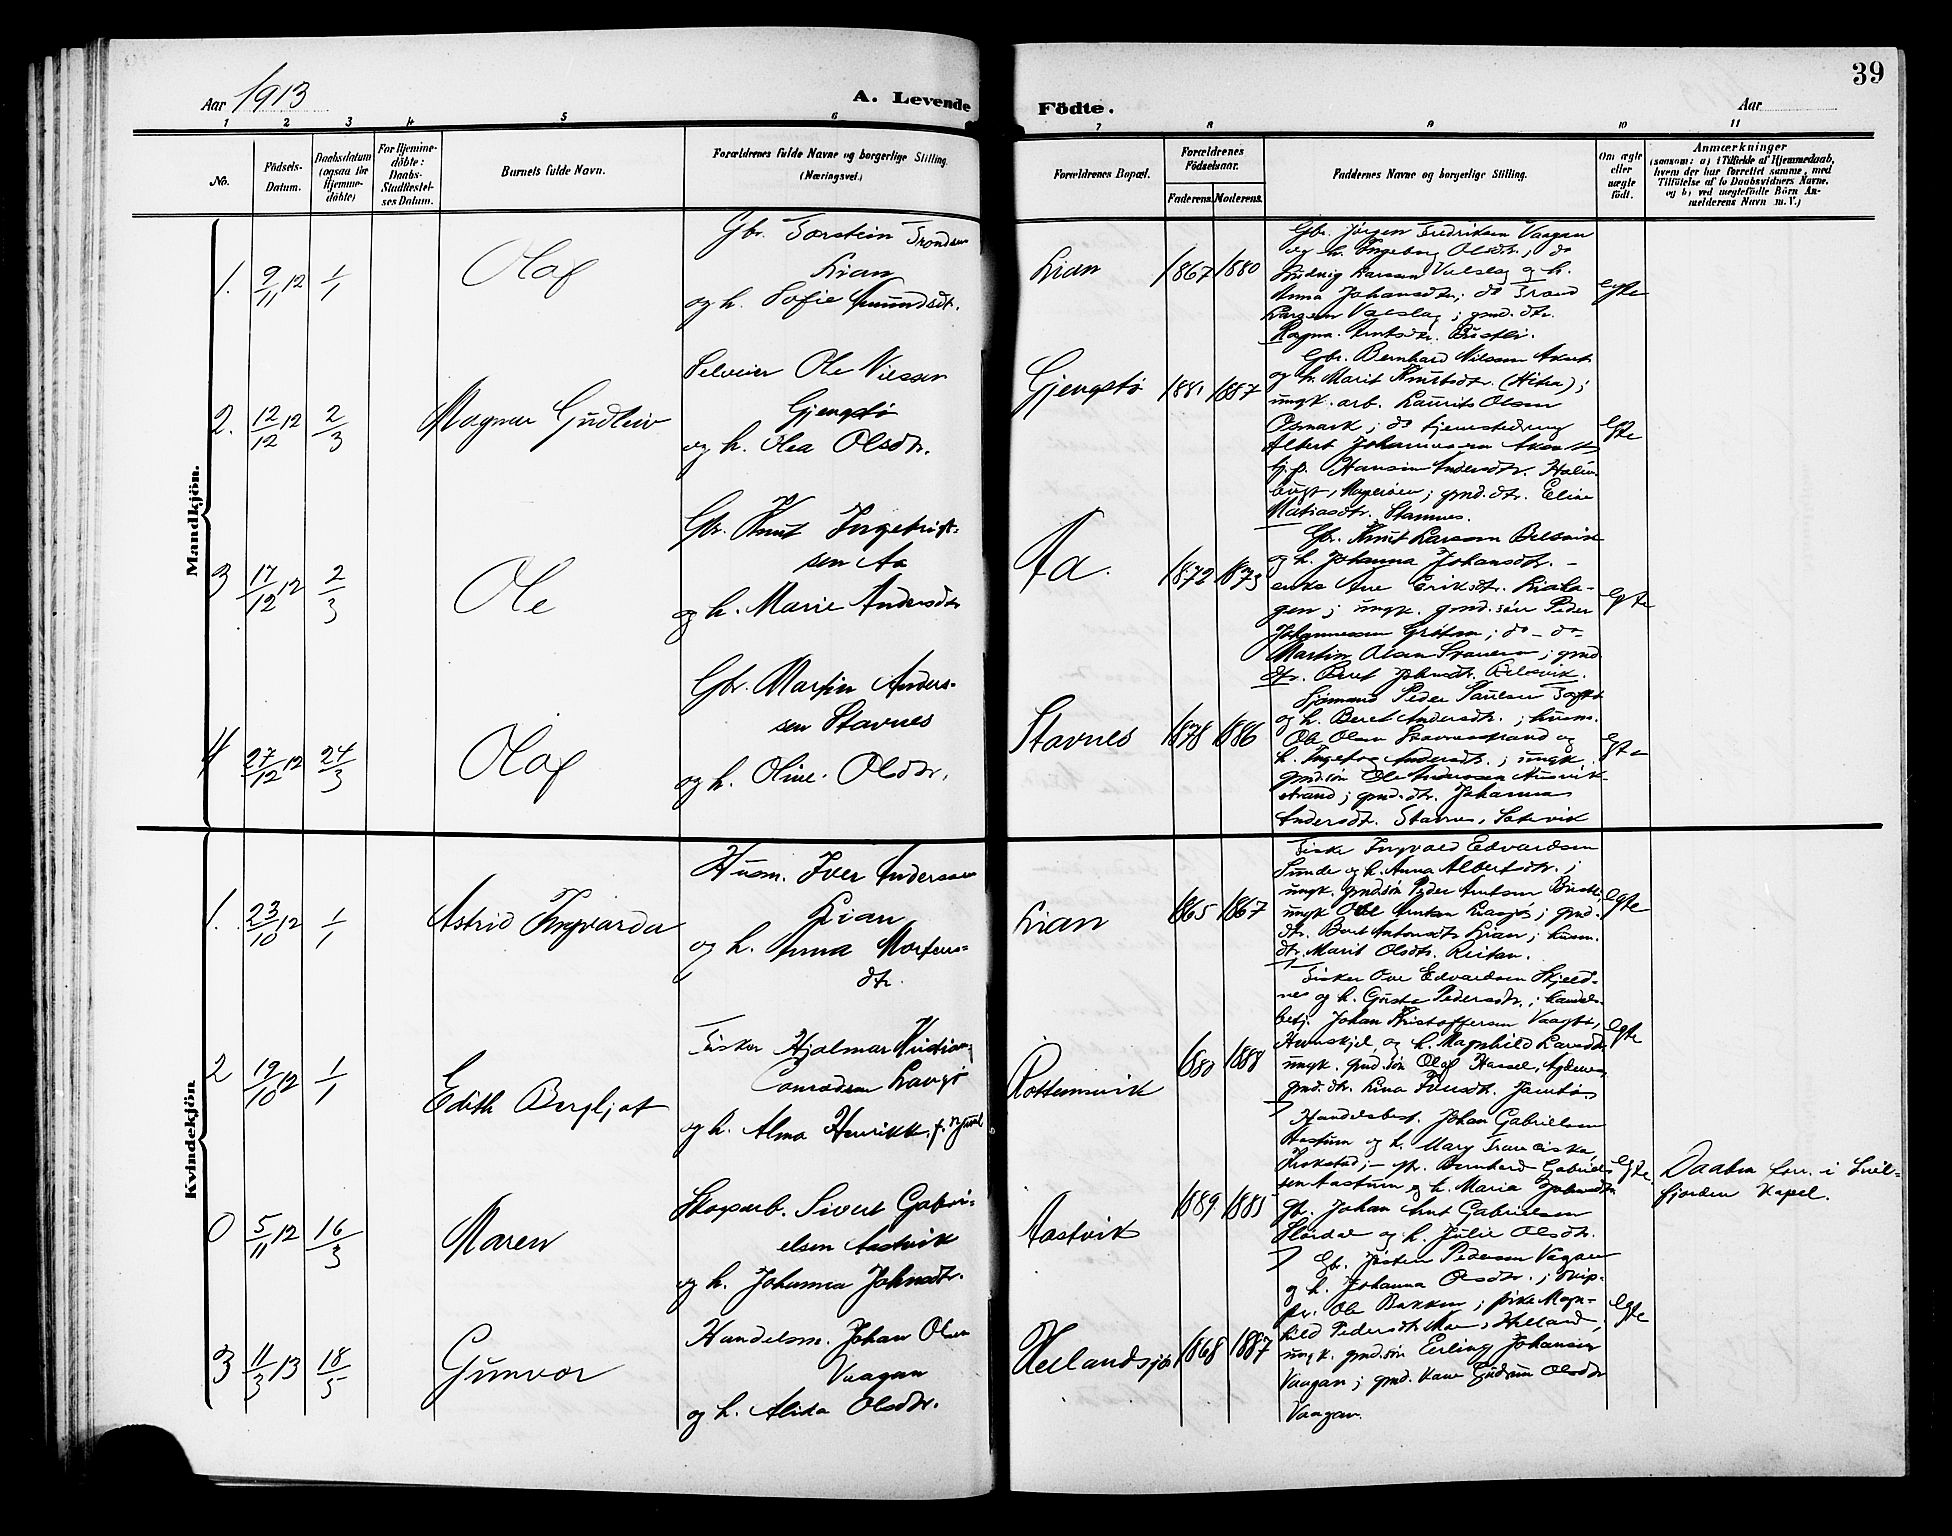 Aar 1913
A. Levende
Födte.
Aar
39
1 2 3 4 5 6 7 8 9 10 11
No.
Födsels-
Datum.
Daabsdatum
(ogsaa for
Hjemme-
döbte)
For Hjemme-
döbte:
Daabs-
Stadfæstel-
ses Datum.
Barnets fulde Navn.
Forældrenes fulde Navne og borgerlige Stilling.
(Næringsvei.)
Forældrenes Bopæl.
Forældrenes
Födselsaar.
Faderens. Moderens.
Faddernes Navne og borgerlige Stilling.
Om ægte
eller
uægte
födt.
Anmærkninger
(saasom: a) i Tilfælde af Hjemmedaab,
hvem der har forrettet samme, med
Tilföielse af to Daabsvidners Navne,
og b) ved uægtefödte Börn An-
melderens Navn m. V.)
Mandkjön.
1. 9/11 12 1/1
Olaf
Gbr. Torstein Trondsen
Lian
og h. Sofie Amundsdt.
Lian
1867 1880
Gbr. Jørgen Fredriksen Vaagan
og h. Ingeborg Olsdtr.; do
Ludvig Larsen Valslag og h.
Anna Johansdtr; do Trond
Larsen Valslag; gmd. dtr.
Ragna Arntsdtr.
egte
2. 12/12 12 2/3
Magnar Gudleiv
Selveier Ole Nilssen
Gjengstø
og h. Olea Olsdtr.
Gjengstø
1881 1887
Gbr. Bernhard Nilssen
og h. Marit Knutsdtr. (Hitra);
ungk. arb. Laurits Olsen
Osmark; do tjenestedreng
Albert Johannessen
tj.p. Hansine Andersdtr.
gmd. dtr. Eline
Matiasdtr. Stamnes.
egte
3 17/12 12 2/3
Ole
Gbr. Knut Ingebrigt-
sen Aa
og h. Marie Andersdtr
Aa.
1872 1873
Gbr. Knut Larsen Belsvik
og h. Johanna Johansdtr. –
enke Ane Eriksdtr. Liaha-
gen; ungk. gmd. søn Peder
Johannessen Grøtan; do – do –
Martin Olsen; gmd.
dtr. Beret Johnsdtr. Belsvik.
egte
4 27/12 12 24/3
Olaf
Gbr. Martin Anders-
sen Stavnes
og h. Oline Olsdtr.
Stavnes
1878 1886
Sjømand Peder Paulsen
og h. Beret Andersdtr.; husm.
Ole Olsen Stavnesstrand og
h. Ingeborg Andersdtr.; ungk.
gmd. søn Ole Anderssen
strand; gmd. dtr. Johanna
Andersdtr. Stavnes,
egte
Kvindekjön
1. 23/10 12 1/1
Astrid Ingvarda
Husm. Iver Anderssen
Lian
og h. Anna Mortens-
dtr.
Lian
1865 1867
Fisker Ingvald Edvardsen
Sunde og h. Anna Albertsdtr.;
ungk. gmd. søn Peder Arntsen
ungk Ole Arntsen; gmd.
dtr. Beret Antonsdtr. Lian; husm.
dtr. Marit Olsdtr. Reitan.
egte
2 19/10 12 1/1
Edith Bergljot
Fisker Hjalmar Kristian
Conradsen
og h. Alma Henrikk.
Rottemsvik
1880 1888
Fisker Ove Edvardsen Skjeld-
nes og h. Gurste Pedersdtr.; handels-
betj. Johan Kristoffersen
Hemskjel og h. Magnhild Larsdtr.
ungk. gmd. søn Olaf Hassel, Agdenes
gmd. dtr. Lina Iversdtr.
egte
0 5/11 12 16/3
Maren
Skogarb. Sivert Gabri-
elsen Aastvik
og h. Johanna Johnsdtr.
Aastvik
1889 1885
Handelsbest. Johan Gabrielsen
Aastum og h. Mary Franciska
Krokstad; – gbr. Bernhard Gabriel-
sen Aastum og h. Maria Johnsdtr
Gbr. Johan Arnt Gabrielsen
Slørdal og h. Julie Olsdtr.
egte
Daaben forr. i Snil-
fjorden Kapel.
3 11/3 13 18/5
Gunvor
Handelsm. Johan Olsen
Vaagan
og h. Alida Olsdtr.
Heilandsjø
1868 1887
Gbr. Jøsten Pedersen Vaagan
og h. Johanna Olsdtr.; skip-
per Ole Bakken; pike Magn-
hild Pedersdtr.
ungk. gmd. søn Erling Johansen
Vaagan; gmd. Gudrun Olsdtr
Vaagan.
egte